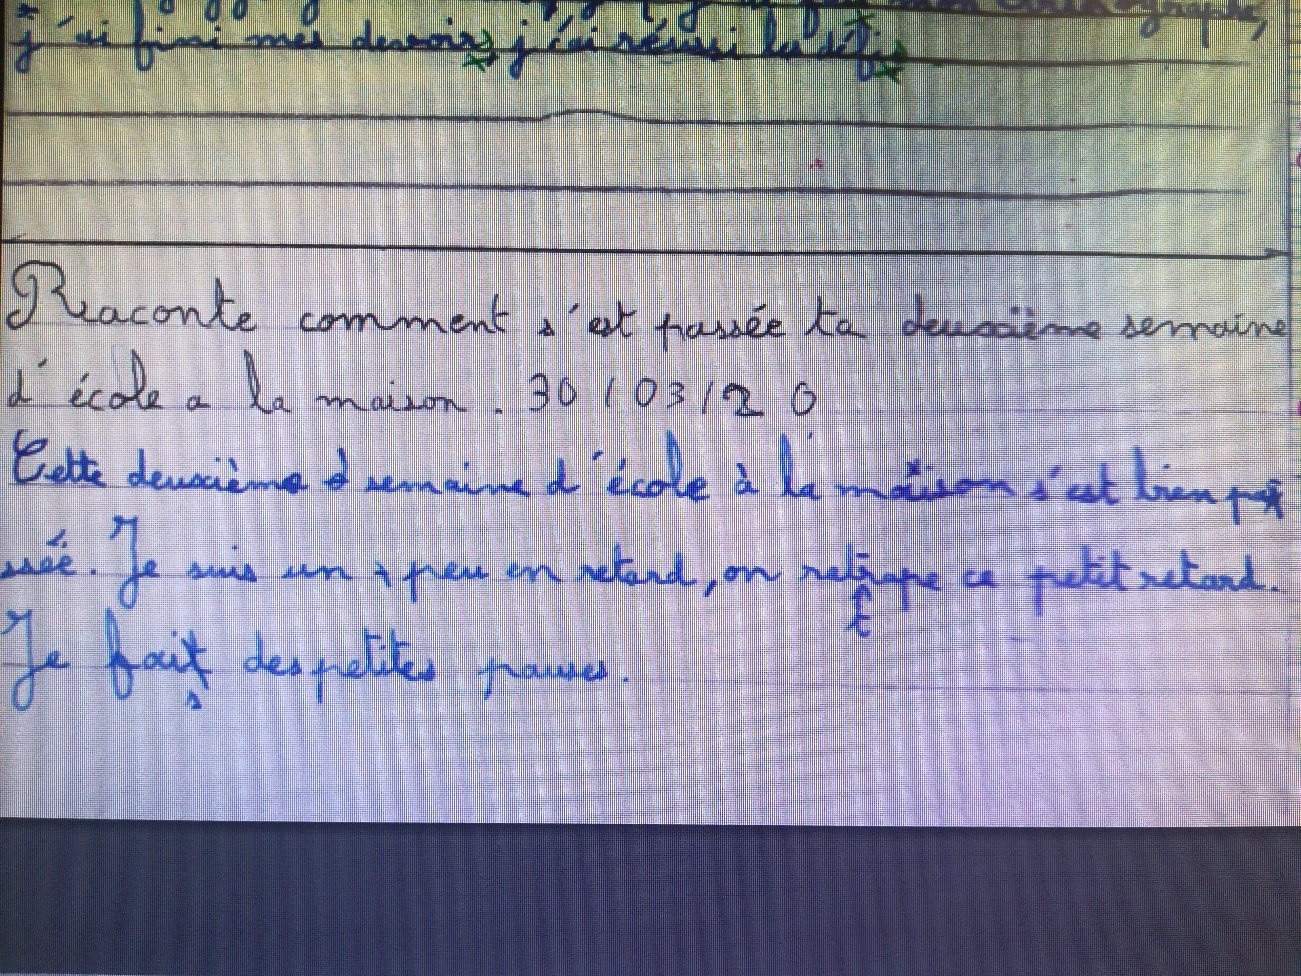 orthographe,
j'ai fini mes devoirs, j'ai réussi
Raconte comment s'est passée ta deuxième semaine
d'école a la maison. 30/03/20
Cette deuxième semaine d'école à la maison s'est bien pas
sée. Je suis un peu en retard, on ratrape ce petit retard.
t
Je fait des petites pauses.
s